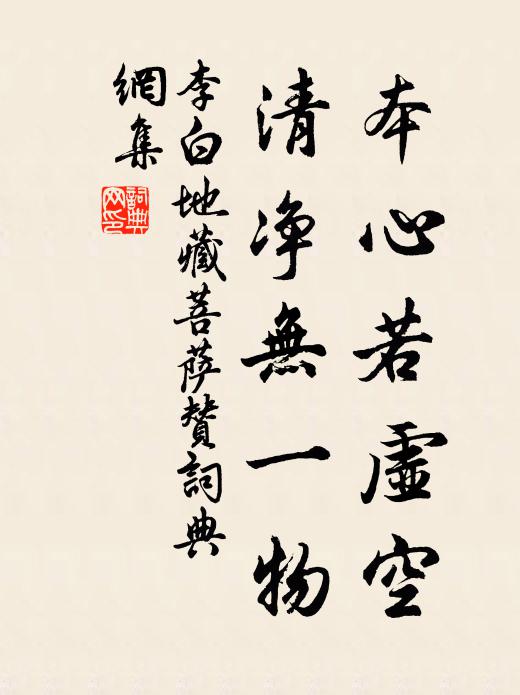 本心若虛空
清净無一物
李白地藏菩萨贊詞典
網集
詞典網印